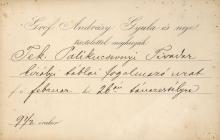 Gróf Andrássy Gyula és neje
tisztelettel meghívják
Tek. Palikucsevnyi Tivadar
királyi táblai fogalmazó urat
f. é. február hó 26án táncestélyre
9½ órakor